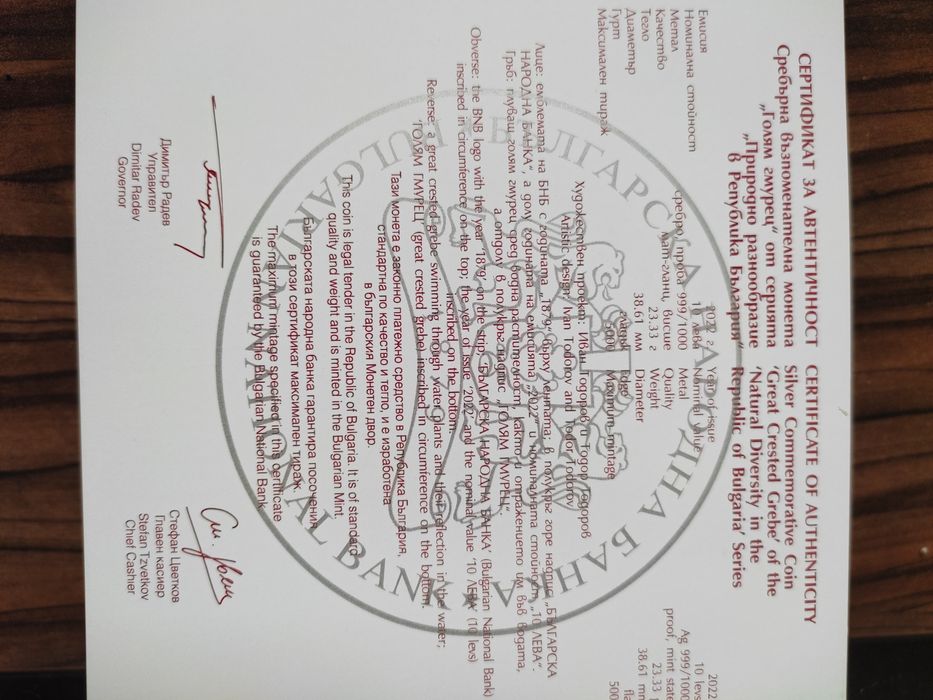 СЕРТИФИКАТ ЗА АВТЕНТИЧНОСТ
Сребърна възпоменателна монета
„Голям гмурец“ от серията
„Природно разнообразие
в Република България“
CERTIFICATE OF AUTHENTICITY
Silver Commemorative Coin
'Great Crested Grebe' of the
'Natural Diversity in the
Republic of Bulgaria' Series
Емисия 2022 г. Year of issue 2022
Номинална стойност 10 лева Nominal value 10 levs
Метал сребро, проба 999/1000 Metal Ag 999/1000
Качество мат-гланц, висше Quality proof, mint
Тегло 23.33 г Weight 23.33
Диаметър 38.61 мм Diameter 38.61
Гурт гладък Edge
Максимален тираж 5000 Maximum mintage
Художествен проект: Иван Тодоров и Тодор Тодоров
Artistic design: Ivan Todorov and Todor Todorov
Лице: емблемата на БНБ с годината „1879“ върху лентата; в полукръг горе надпис „БЪЛГАРСКА
НАРОДНА БАНКА“, а долу годината на емисията „2022“ и номиналната стойност „10 ЛЕВА“.
Гръб: плуващ голям гмурец сред водна растителност, както и отражението им във водата,
а отдолу в полукръг надпис „ГОЛЯМ ГМУРЕЦ“.
Obverse: the BNB logo with the year '1879' on the strip; 'БЪЛГАРСКА НАРОДНА БАНКА' (Bulgarian National Bank)
inscribed in circumference on the top; the year of issue '2022' and the nominal value '10 ЛЕВА' (10 levs)
inscribed on the bottom.
Reverse: a great crested grebe swimming through water plants and their reflection in the water;
'ГОЛЯМ ГМУРЕЦ' (great crested grebe) inscribed in circumference on the bottom.
Тази монета е законно платежно средство в Република България,
стандартна по качество и тегло, и е изработена
в българския Монетен двор.
This coin is legal tender in the Republic of Bulgaria. It is of standard
quality and weight and is minted in the Bulgarian Mint.
Българската народна банка гарантира посочения
в този сертификат максимален тираж.
The maximum mintage specified in this certificate
is guaranteed by the Bulgarian National Bank.
Димитър Радев
Управител
Dimitar Radev
Governor
Стефан Цветков
Главен касиер
Stefan Tzvetkov
Chief Cashier
БЪЛГАРСКА НАРОДНА БАНКА
BULGARIAN NATIONAL BANK